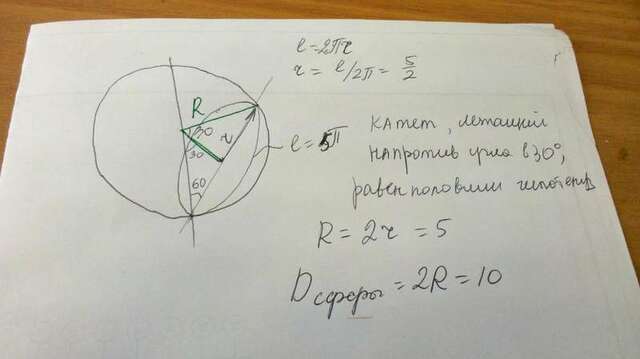 l=2πr
r = l/2π = 5/2
R
30
r
30
60
l = 5π
катет, лежащий
напротив угла в 30°,
равен половины гипотенуз
R = 2r = 5
D сферы = 2R = 10